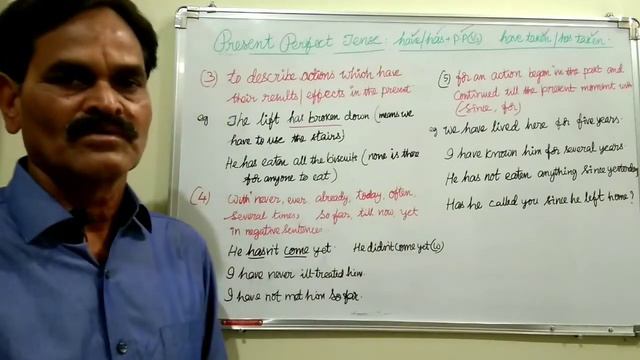 Present Perfect Tense: have/has + P.P(V3) have taken/has taken.
(3) to describe actions which have
their results/effects in the present
eg The lift has broken down (means we
have to use the stairs)
He has eaten all the biscuits (none is there
for anyone to eat)
(4) With never, ever, already, today, often,
Several times, so far, till now, yet
in negative sentences
He hasn't come yet. He didn't come yet
I have never ill-treated him.
I have not met him so far.
(5) for an action began in the past and
Continued till the present moment with
(since, for)
eg we have lived here for five years.
I have known him for several years.
He has not eaten anything since yesterday
Has he called you since he left home?